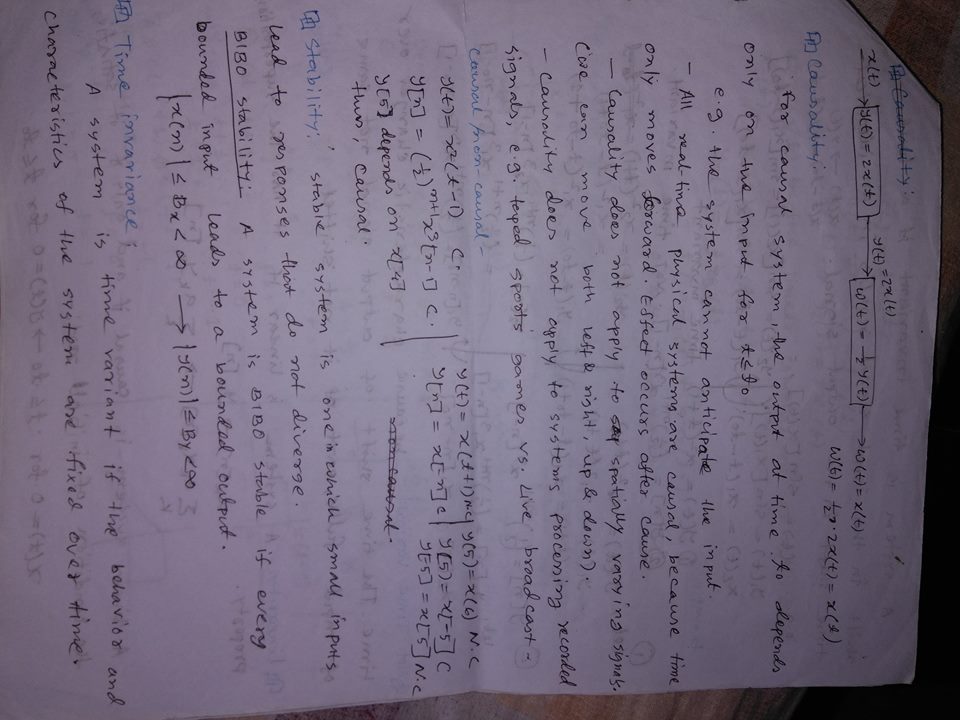 Causality:
x(t) y(t) = 2x(t) y(t) = 2x(t) w(t) = 1/2 y(t) w(t) = x(t)
w(t) = 1/2 . 2x(t) = x(t)
Causality:
for causal system, the output at time to depends
only on the input for t ≤ to.
e.g. the system cannot anticipate the input.
- All real-time physical systems are causal, because time
only moves forward. Effect occurs after cause.
- Causality does not apply to spatially varying signals.
(we can move both left & right, up & down).
- Causality does not apply to systems processing recorded
signals, e.g. taped sports games vs. Live broadcast -
causal/non-causal -
y(t) = x²(t-1) C.
y[n] = (1/2)^n+1 x³[n-1] C.
y[5] depends on x[4]
thus, causal.
y(t) = x(t+1) N.C y(5) = x(6) N.C
y[n] = x[-n] C y[5] = x[-5] C
y[-5] = x[5] N.C
non causal.
Stability: stable system is one in which small inputs
Lead to responses that do not diverge.
BIBO stability: A system is BIBO stable if every
bounded input leads to a bounded output.
|x(n)| ≤ Bx < ∞ → |y(n)| ≤ By < ∞
Time invariance:
A system is time variant if the behavior and
characteristics of the system are fixed over time.